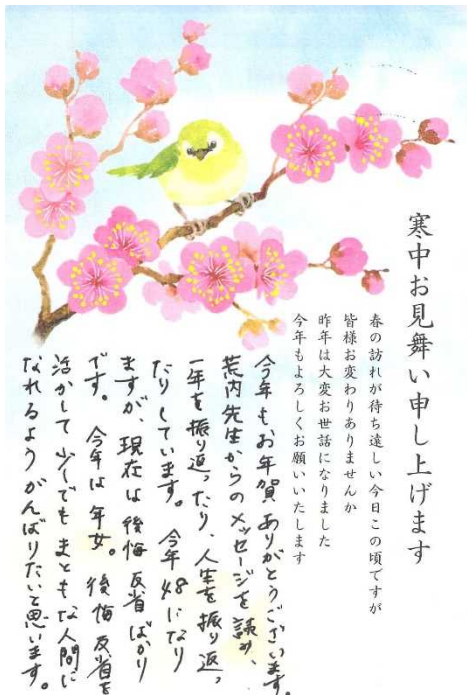 寒中お見舞い申し上げます
春の訪れが待ち遠しい今日この頃ですが
皆様お変わりありませんか
昨年は大変お世話になりました
今年もよろしくお願いいたします
今年もお年賀ありがとうございます。
荒内先生からのメッセージを読み、
一年を振り返ったり、人生を振り返っ
たりしています。 今年48になり
ますが、現在は後悔 反省ばかり
です。 今年は年女。 後悔 反省を
活かして 少しでも まともな人間に
なれるようがんばりたいと思います。